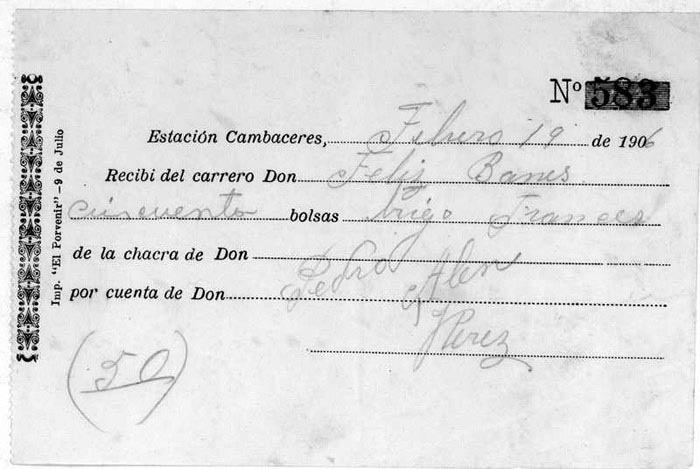 Nº 583
Estación Cambaceres, Febrero 19 de 1906
Recibi del carrero Don Feliz Banes
cincuenta bolsas trigo Frances
de la chacra de Don
por cuenta de Don Pedro Alen
J Perez
(50)
Imp. "El Porvenir" - 9 de Julio